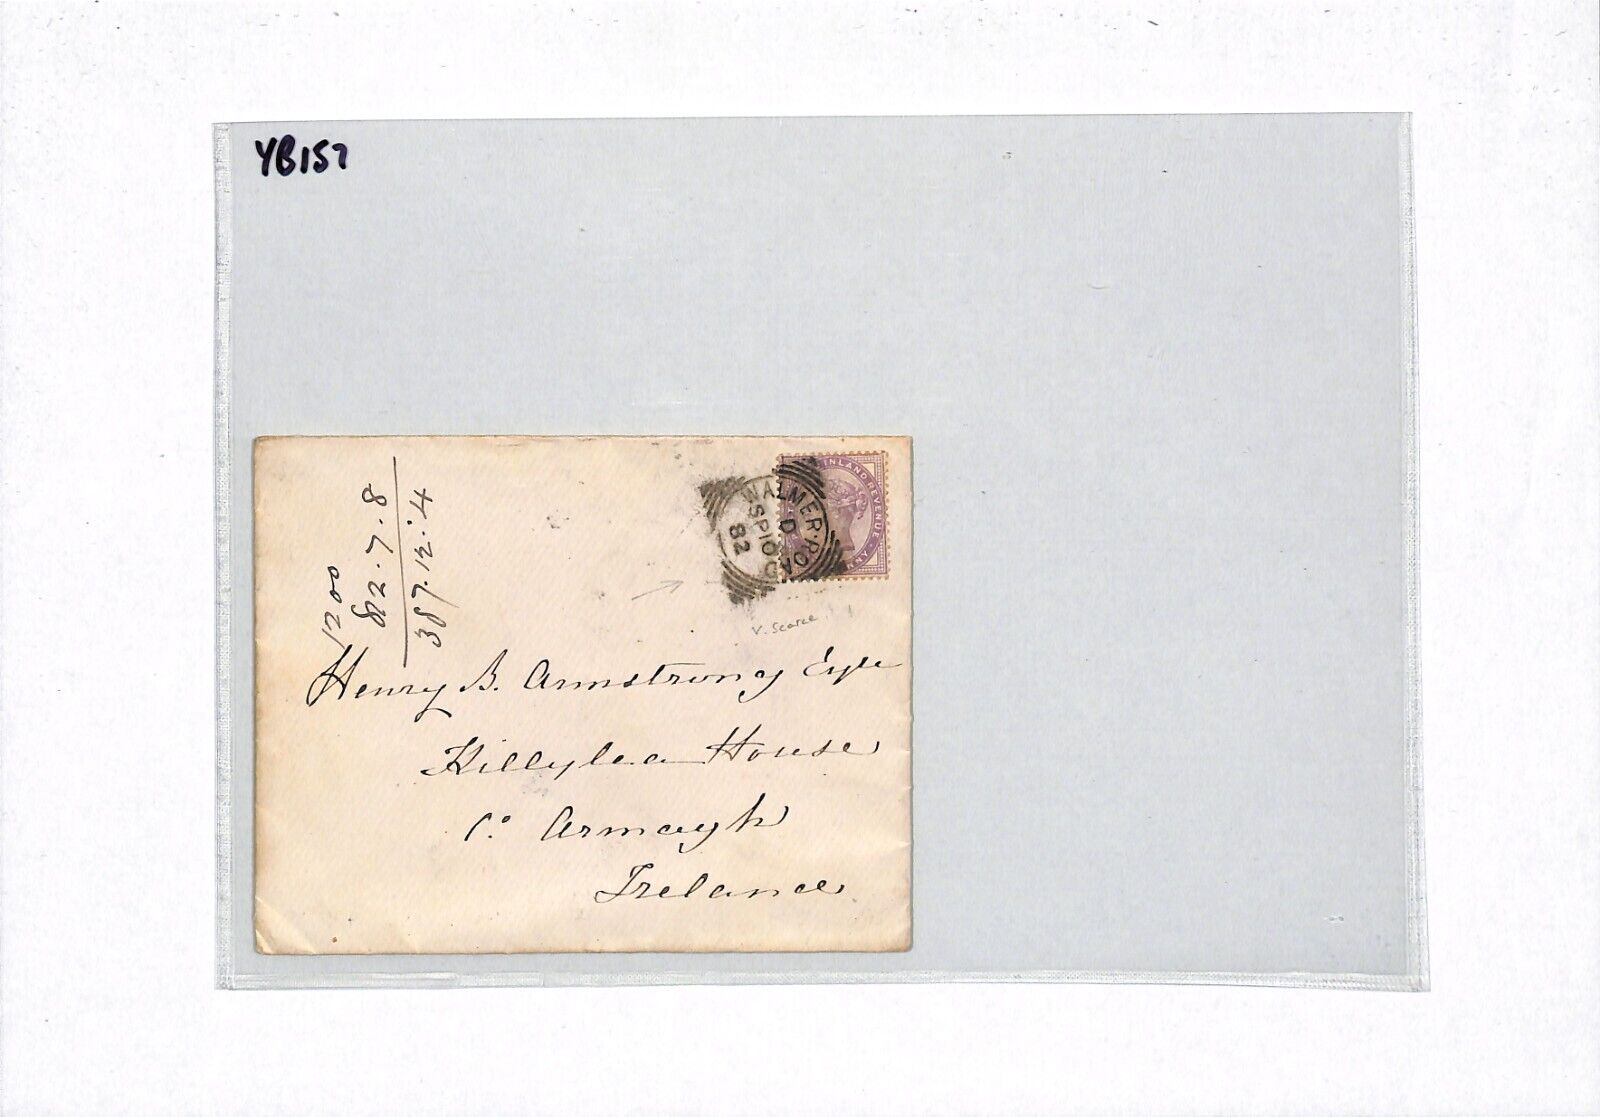 YB157
1200
812.7.8
387.12.4
INLAND REVENUE
NNY
WALMER·ROAD
D
SP 10
82
v. scarce
Henry B. Armstrong Esqre
Killylea House
Co Armagh
Ireland